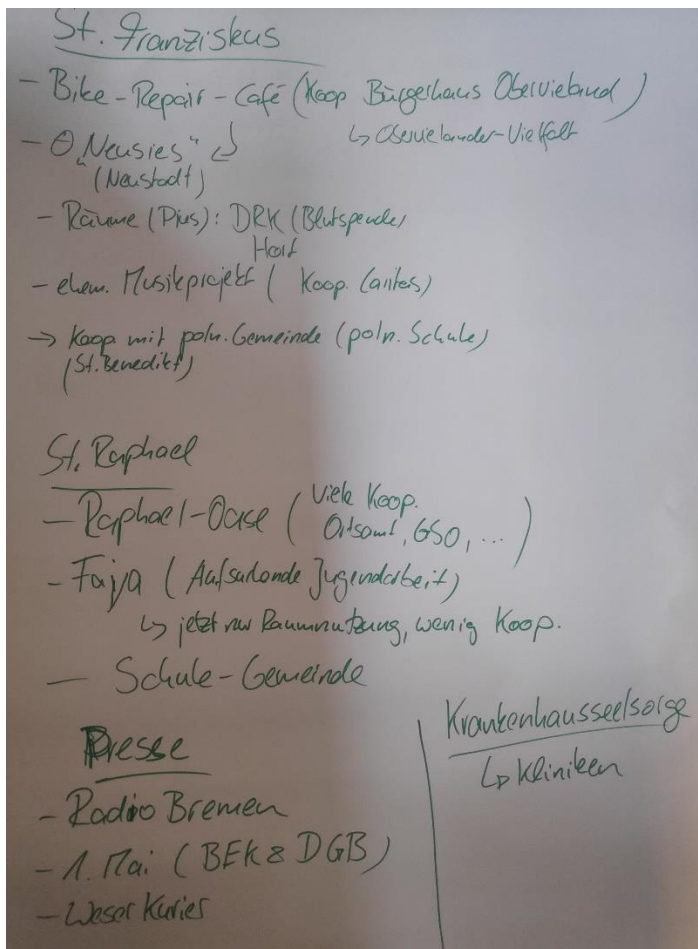 St. Franziskus
- Bike-Repair-Café (Koop Bürgerhaus Obervieland)
↳ Obervielander-Vielfalt
- "Neusies"
(Neustadt)
- Räume (Pius): DRK (Blutspende)
Hort
- ehem. Musikprojekt (Koop. Caritas)
→ Koop mit poln. Gemeinde (poln. Schule)
(St. Benedikt)
St. Raphael
- Raphael-Oase (Viele Koop.
Ortsamt, GSO, ...)
- Faja (Aufsuchende Jugendarbeit)
↳ jetzt nur Raumnutzung, wenig Koop.
- Schule-Gemeinde
Presse
- Radio Bremen
- 1. Mai (BEK & DGB)
- Weser Kurier
Krankenhausseelsorge
↳ Kliniken